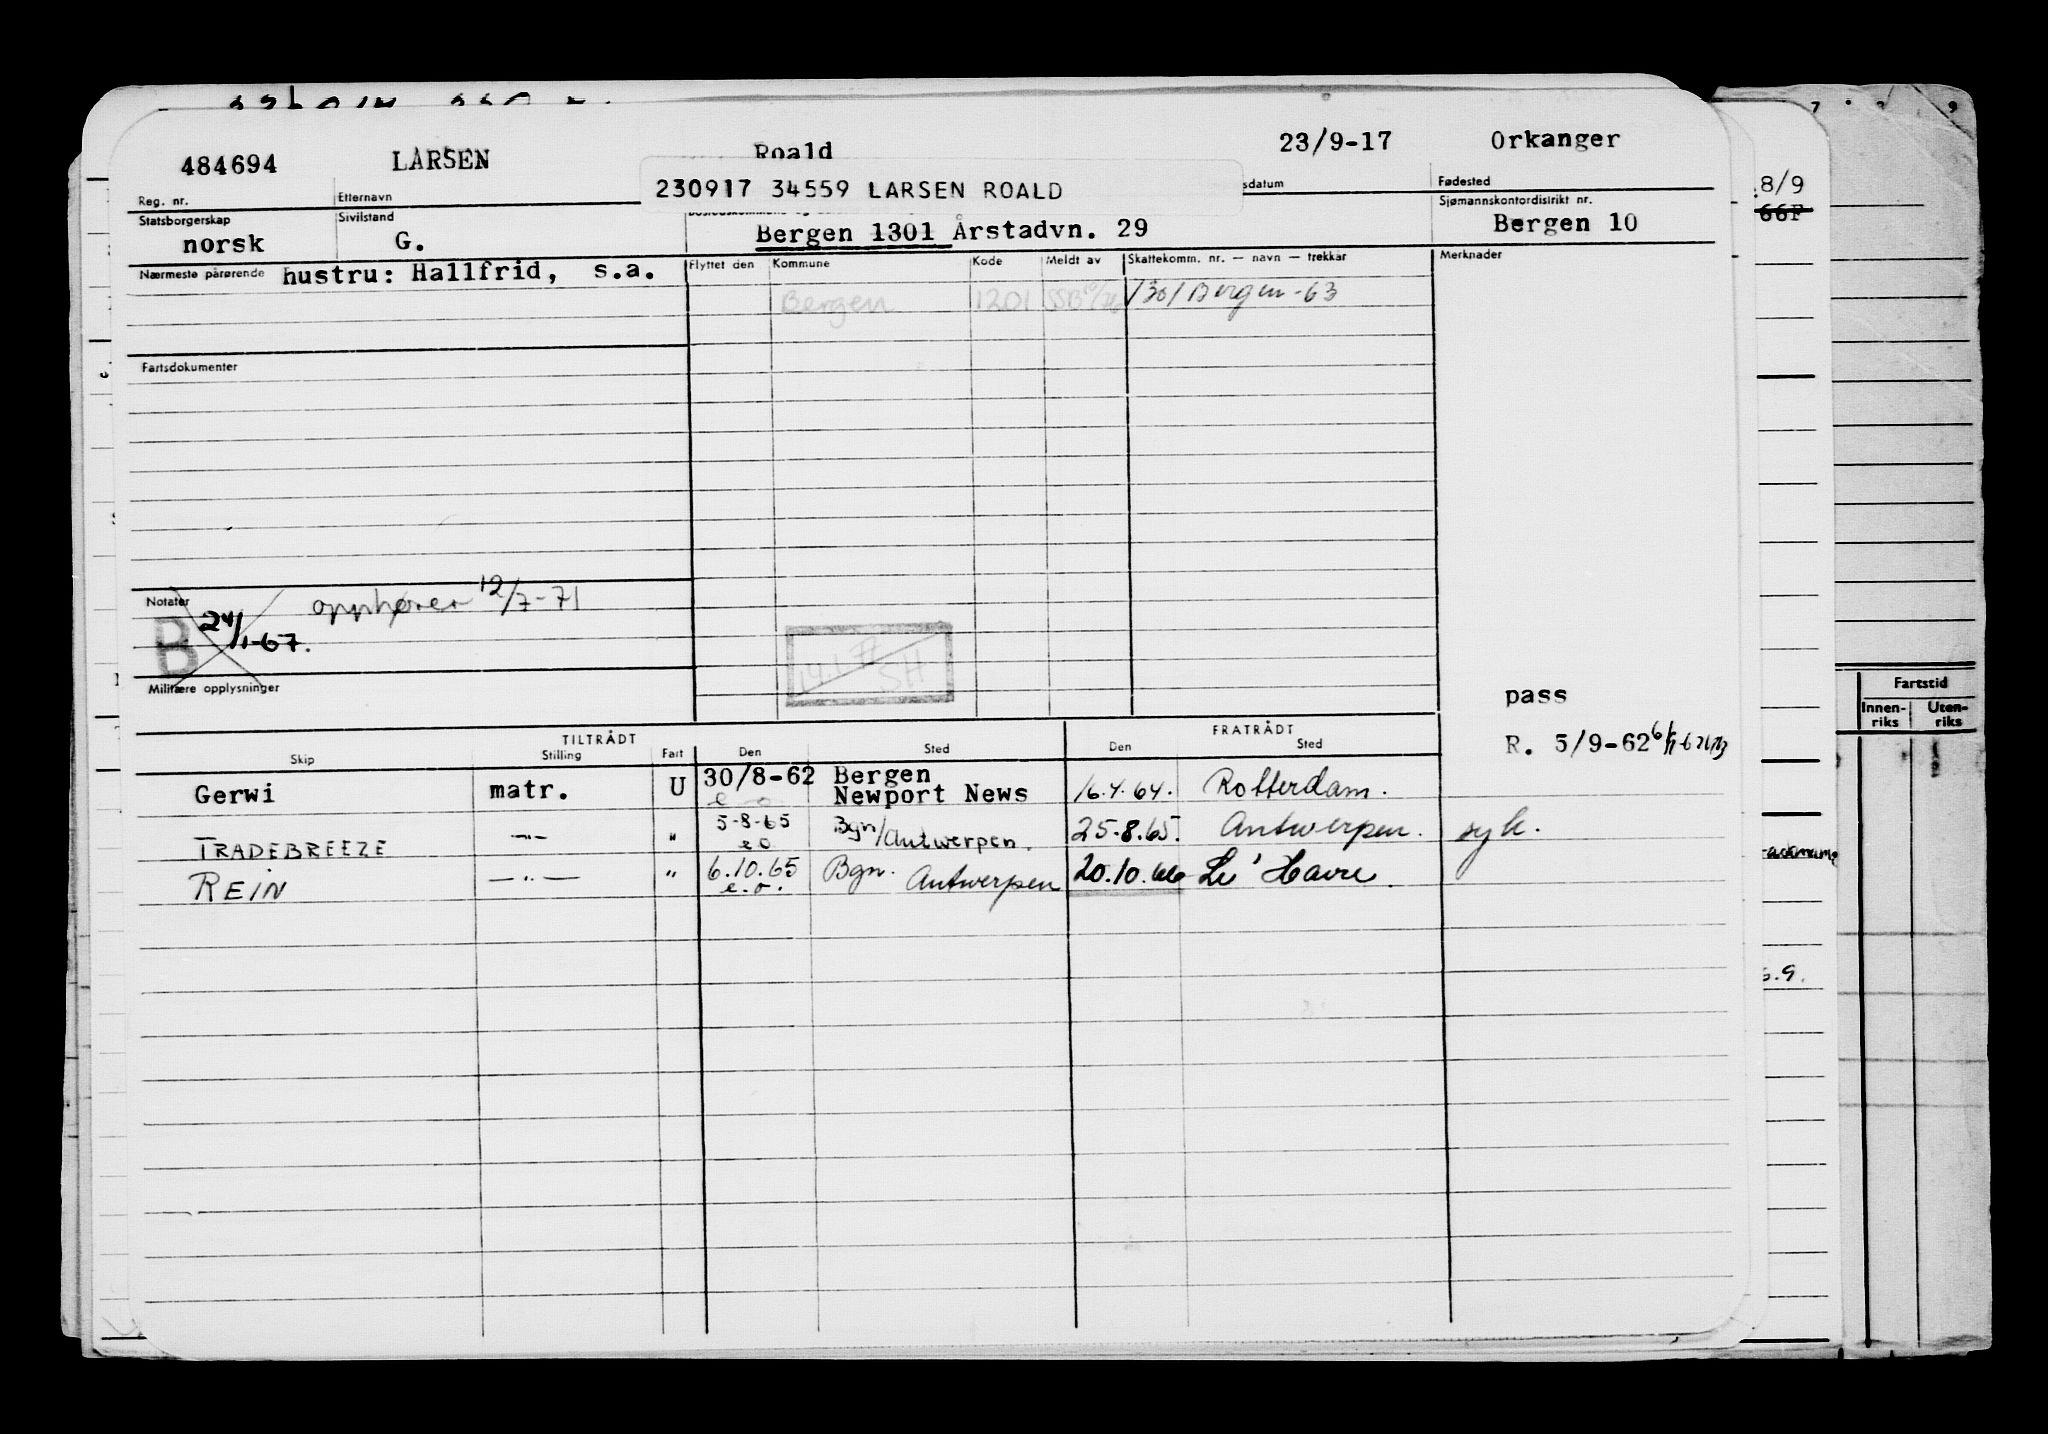 484694 LARSEN Roald 23/9-17 Orkanger
Reg. nr. Etternavn 230917 34559 LARSEN ROALD sdatum Fødested
Statsborgerskap Sivilstand Sjømannskontordistrikt nr.
norsk G. Bergen 1301 Årstadvn. 29 Bergen 10
Nærmeste pårørende hustru: Hallfrid, s.a. Flyttet den Kommune Kode Meldt av Skattekomm. nr. — navn — trekkår Merknader
Bergen 1201 1301 Bergen-63
Fartsdokumenter
Notater opphører 12/7-71
B 24/1-67.
Militære opplysninger
pass
R. 5/9-62
TILTRÅDT FRATRÅDT
Skip Stilling Fart Den Sted Den Sted
Gerwi matr. U 30/8-62 Bergen
e o Newport News 16.4.64. Rotterdam.
TRADEBREEZE —"— " 5-8-65 Bgn/Antwerpen. 25.8.65. Antwerpen. syk.
e o
REIN —"— " 6.10.65 Bgn. Antwerpen 20.10.66 Le' Havre.
e.o.
8/9
66F
Fartstid
Innen-riks Uten-riks
7 8 9